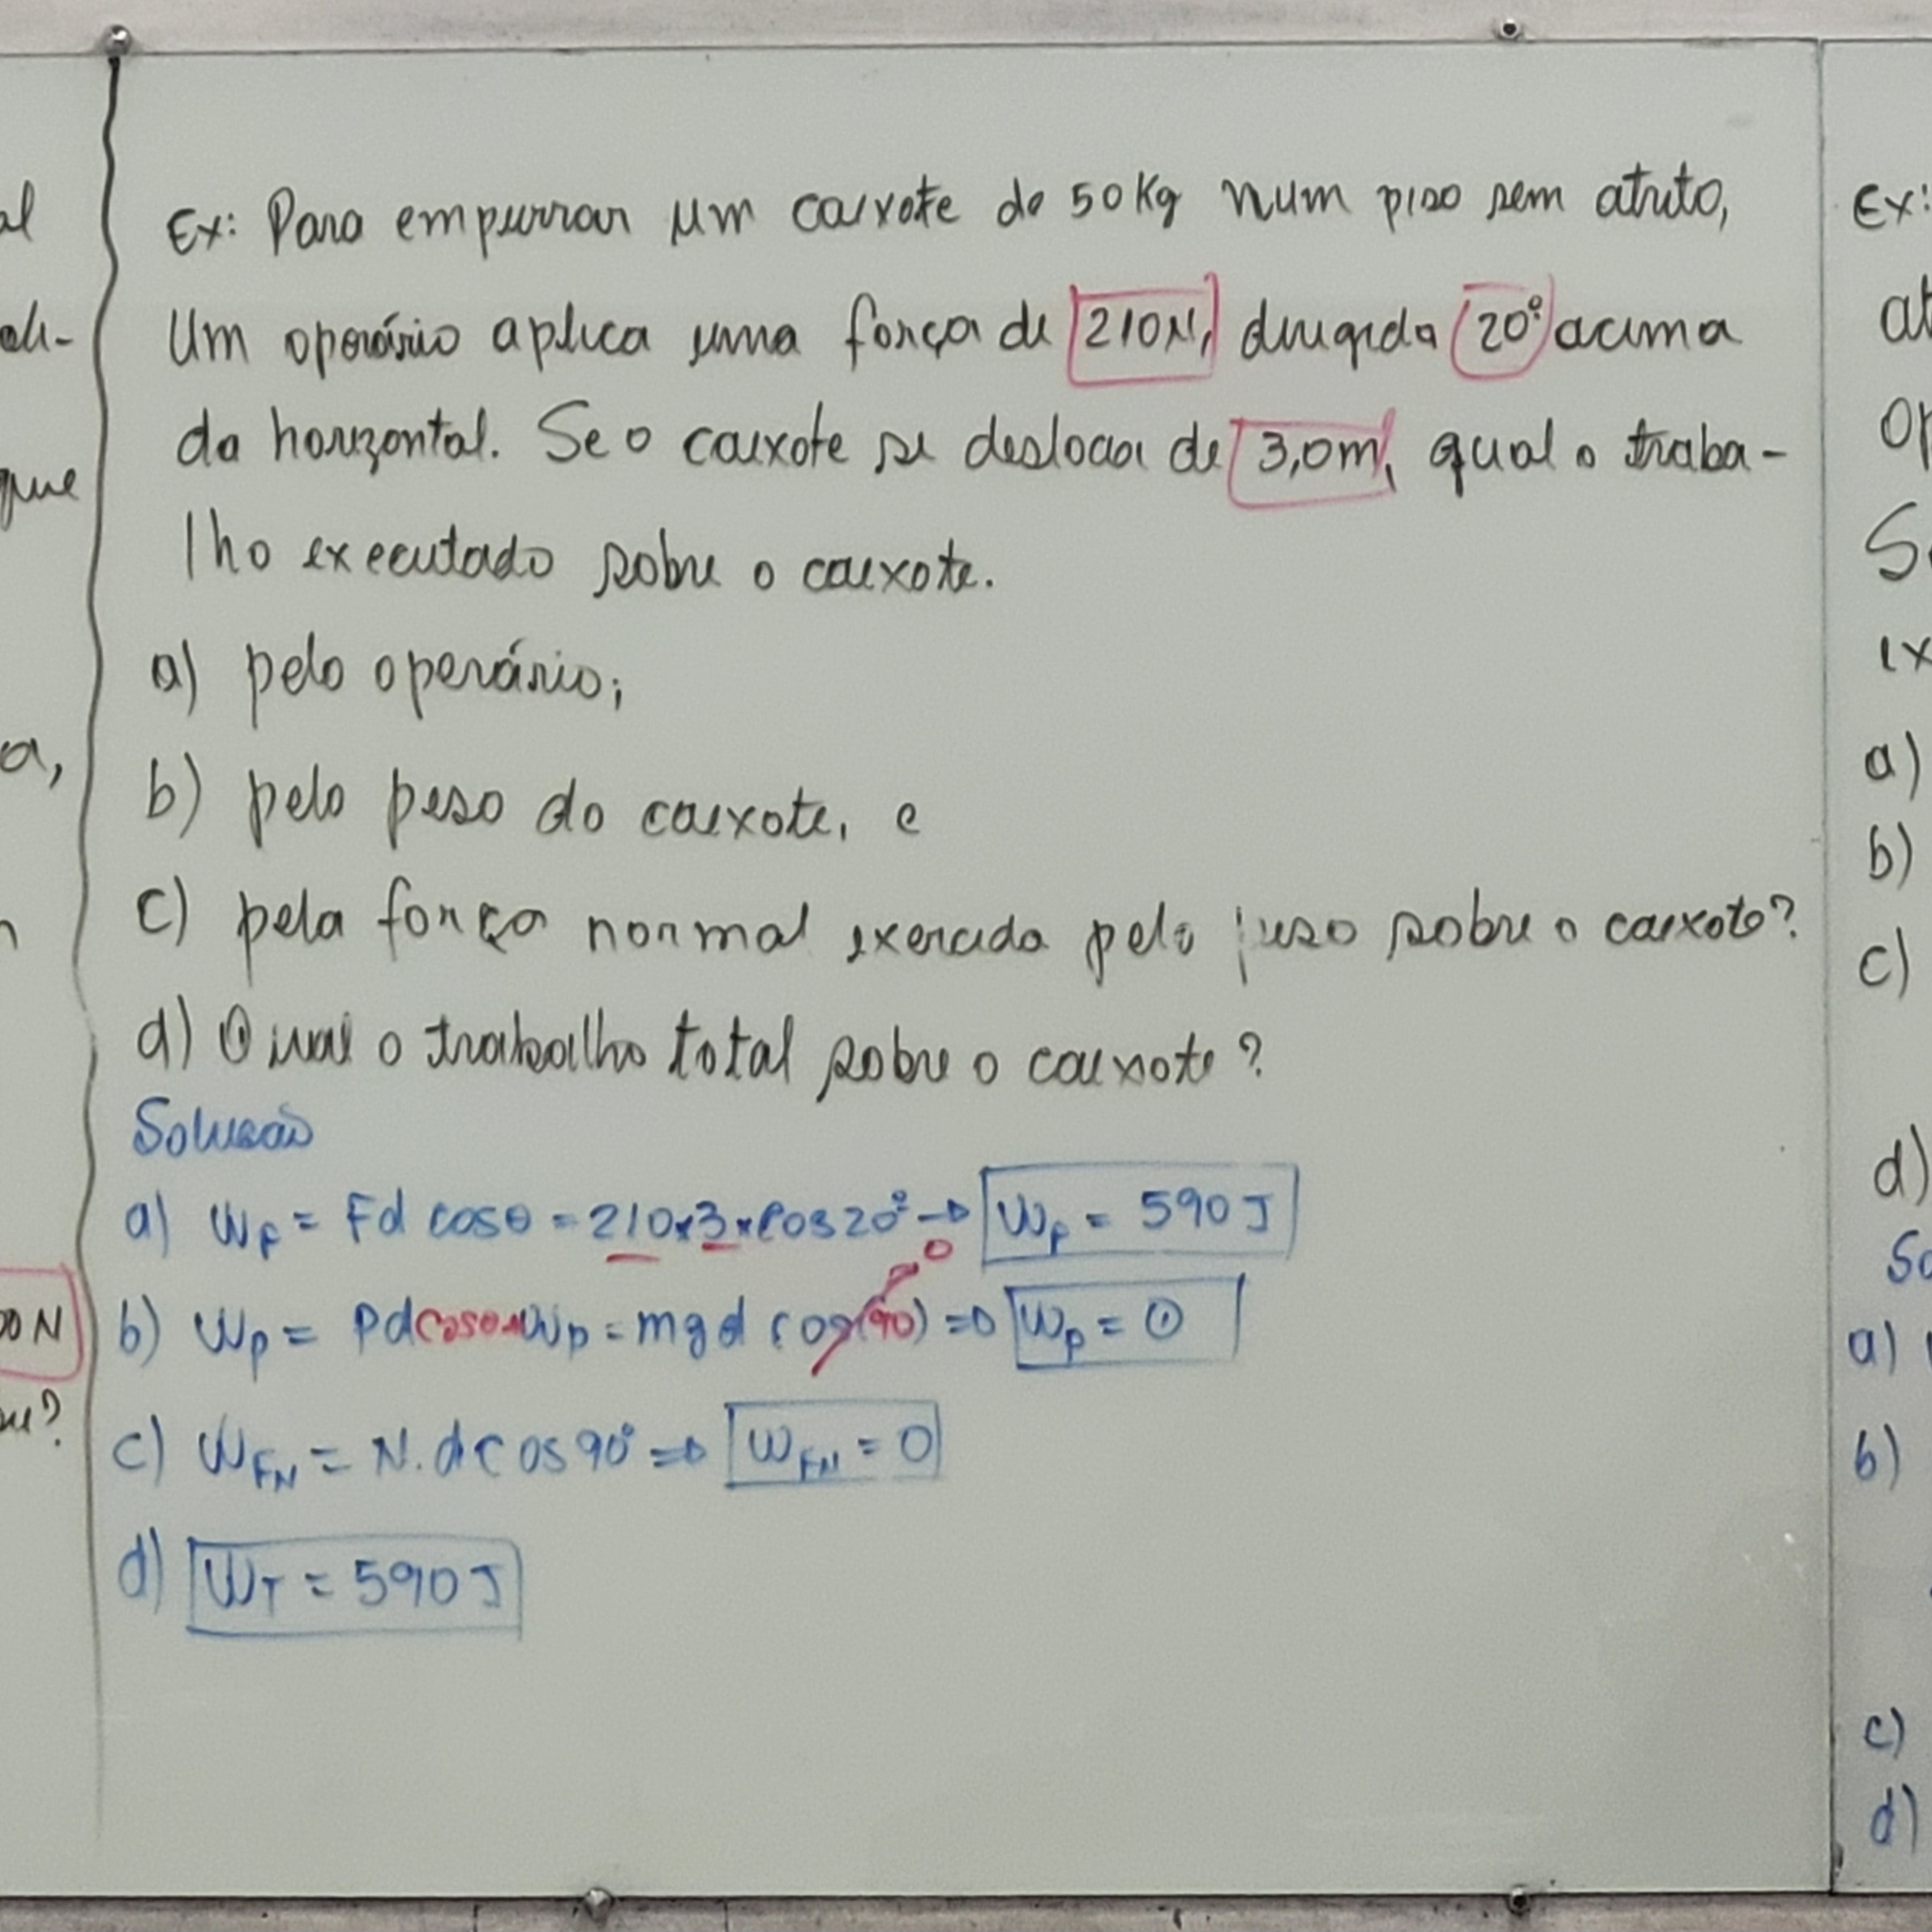 al
ali-
que
a,
00 N
Ex: Para empurrar um caixote de 50 Kg num piso sem atrito,
Um operário aplica uma força de 210N, dirigida 20° acima
da horizontal. Se o caixote se desloca de 3,0m, qual o traba-
lho executado sobre o caixote.
a) pelo operário;
b) pelo peso do caixote, e
c) pela força normal exercida pelo piso sobre o caixote?
d) Qual o trabalho total sobre o caixote?
Solução
a) W_F = Fd cosθ = 210x3xcos20° → W_F = 590 J
b) W_P = Pd cosθ → W_P = mgd cos(90) 0 ⇒ W_P = 0
c) W_FN = N.d cos 90° ⇒ W_FN = 0
d) W_T = 590 J
Ex:
at
op
a)
b)
c)
d)
So
a)
b)
c)
d)